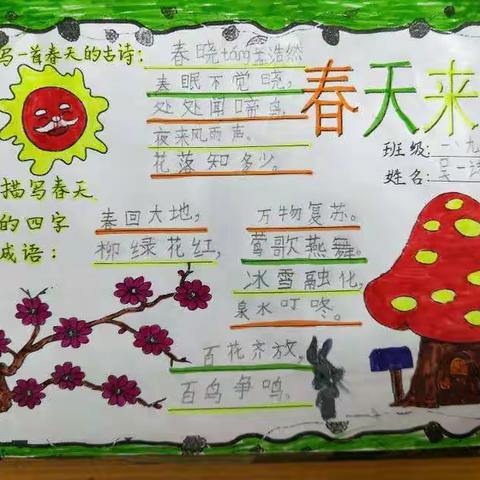 写一首春天的古诗：
春晓táng孟浩然
春眠不觉晓，
处处闻啼鸟，
夜来风雨声。
花落知多少。
春天来
班级：一、九
姓名：吴一诗
描写春天
的四字
成语：
春回大地，
万物复苏。
柳绿花红，
莺歌燕舞。
冰雪融化，
泉水叮咚。
百花齐放，
百鸟争鸣。